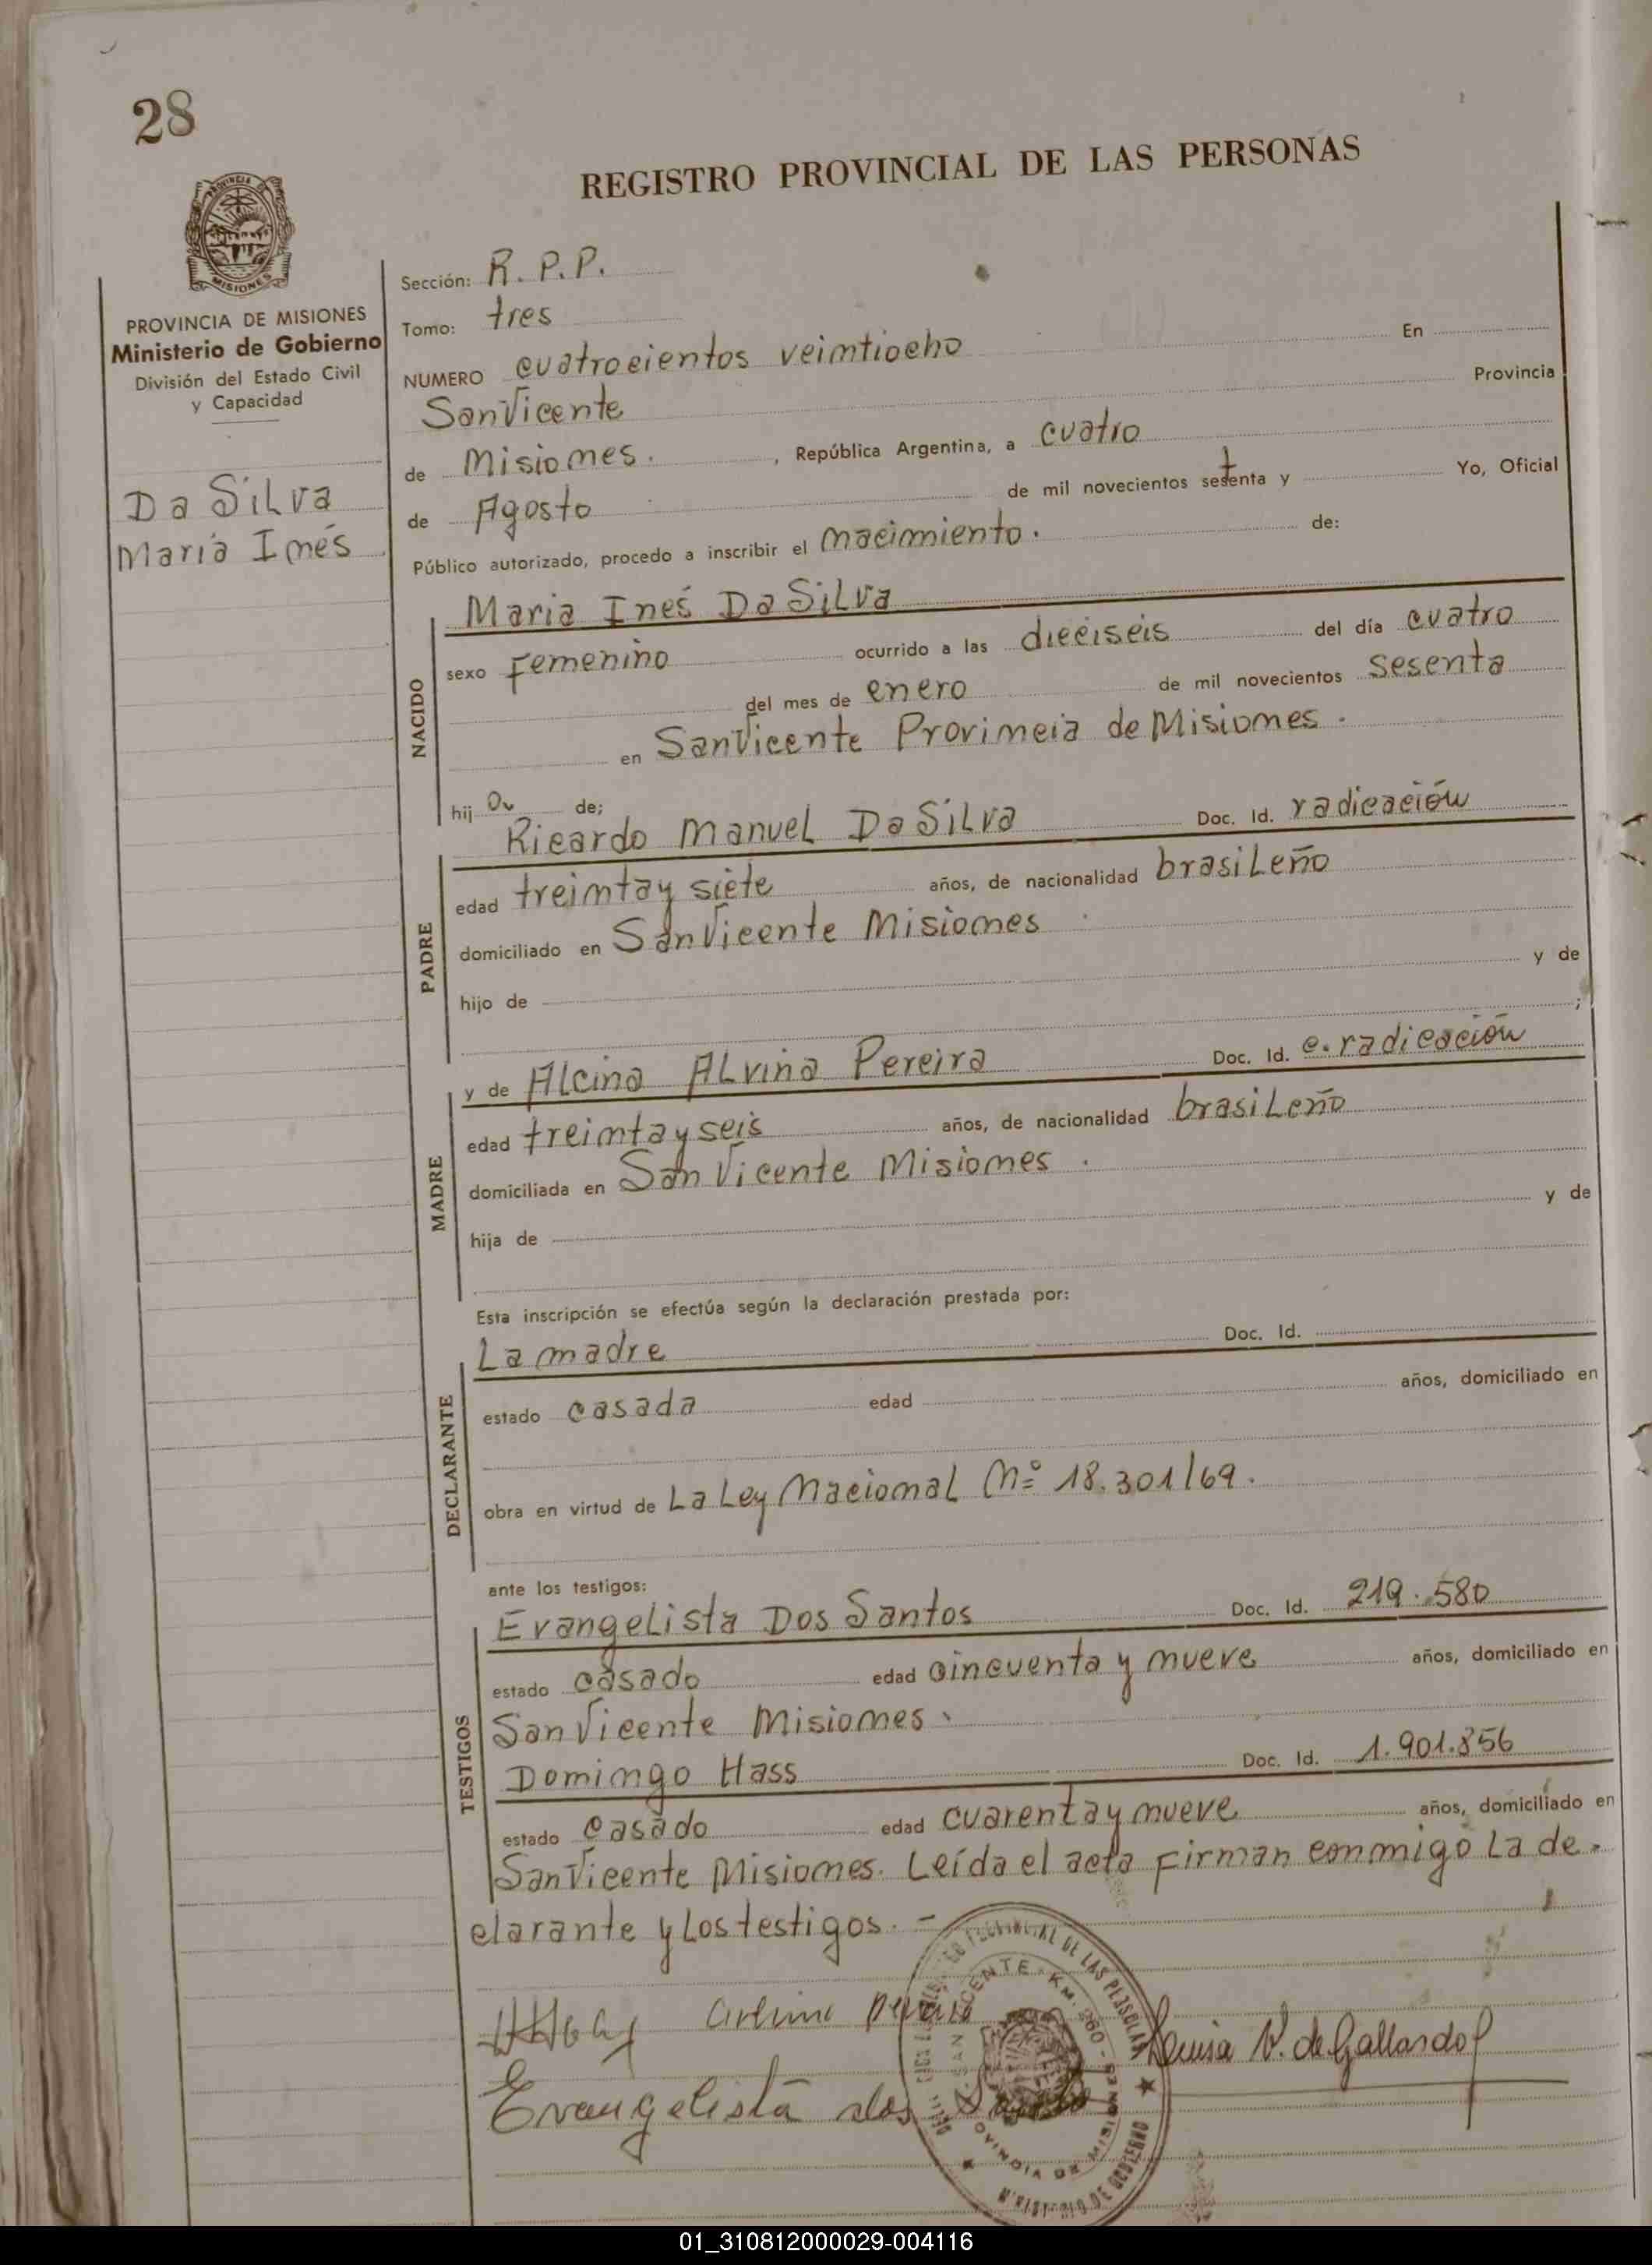 28
REGISTRO PROVINCIAL DE LAS PERSONAS
PROVINCIA DE
MISIONES
PROVINCIA DE MISIONES
Ministerio de Gobierno
División del Estado Civil
y Capacidad
Da SiLva
Maria Imés
Sección: R. P. P.
Tomo: tres
NUMERO cuatrocientos veimtiocho En
San Vicente Provincia
de Misiomes. , República Argentina, a cuatro
de Agosto de mil novecientos setenta y Yo, Oficial
Público autorizado, procedo a inscribir el macimiento. de:
NACIDO
Maria Inés Da SiLva
sexo Femenino ocurrido a las dieciseis del día cuatro
del mes de enero de mil novecientos sesenta
en San Vicente Provimcia de Misiomes.
hij a de;
PADRE
Ricardo Manuel Da SiLva Doc. Id. radicación
edad treimta y siete años, de nacionalidad brasiLeño
domiciliado en San Vicente Misiomes
hijo de y de
;
MADRE
y de ALcina ALvina Pereira Doc. Id. c. radicación
edad treimta y seis años, de nacionalidad brasiLeño
domiciliada en San Vicente Misiomes.
hija de y de
Esta inscripción se efectúa según la declaración prestada por:
DECLARANTE
La madre Doc. Id.
estado casada edad años, domiciliado en
obra en virtud de La Ley NacionaL Nº 18.301/69.
ante los testigos:
TESTIGOS
EvangeLista Dos Santos Doc. Id. 219.580
estado casado edad cincuenta y mueve años, domiciliado en
San Vicente Misiomes.
Domingo Hass Doc. Id. 1.901.856
estado casado edad cuarenta y mueve años, domiciliado en
San Vicente Misiomes. Leída el acta Firman conmigo La de-
clarante y Los testigos. -
PROVINCIAL DE LAS PERSONAS
SAN VICENTE - KM. 260 -
PROVINCIA DE MISIONES
Evangelista dos Santos
Luisa V. de Gallardo
01_310812000029-004116